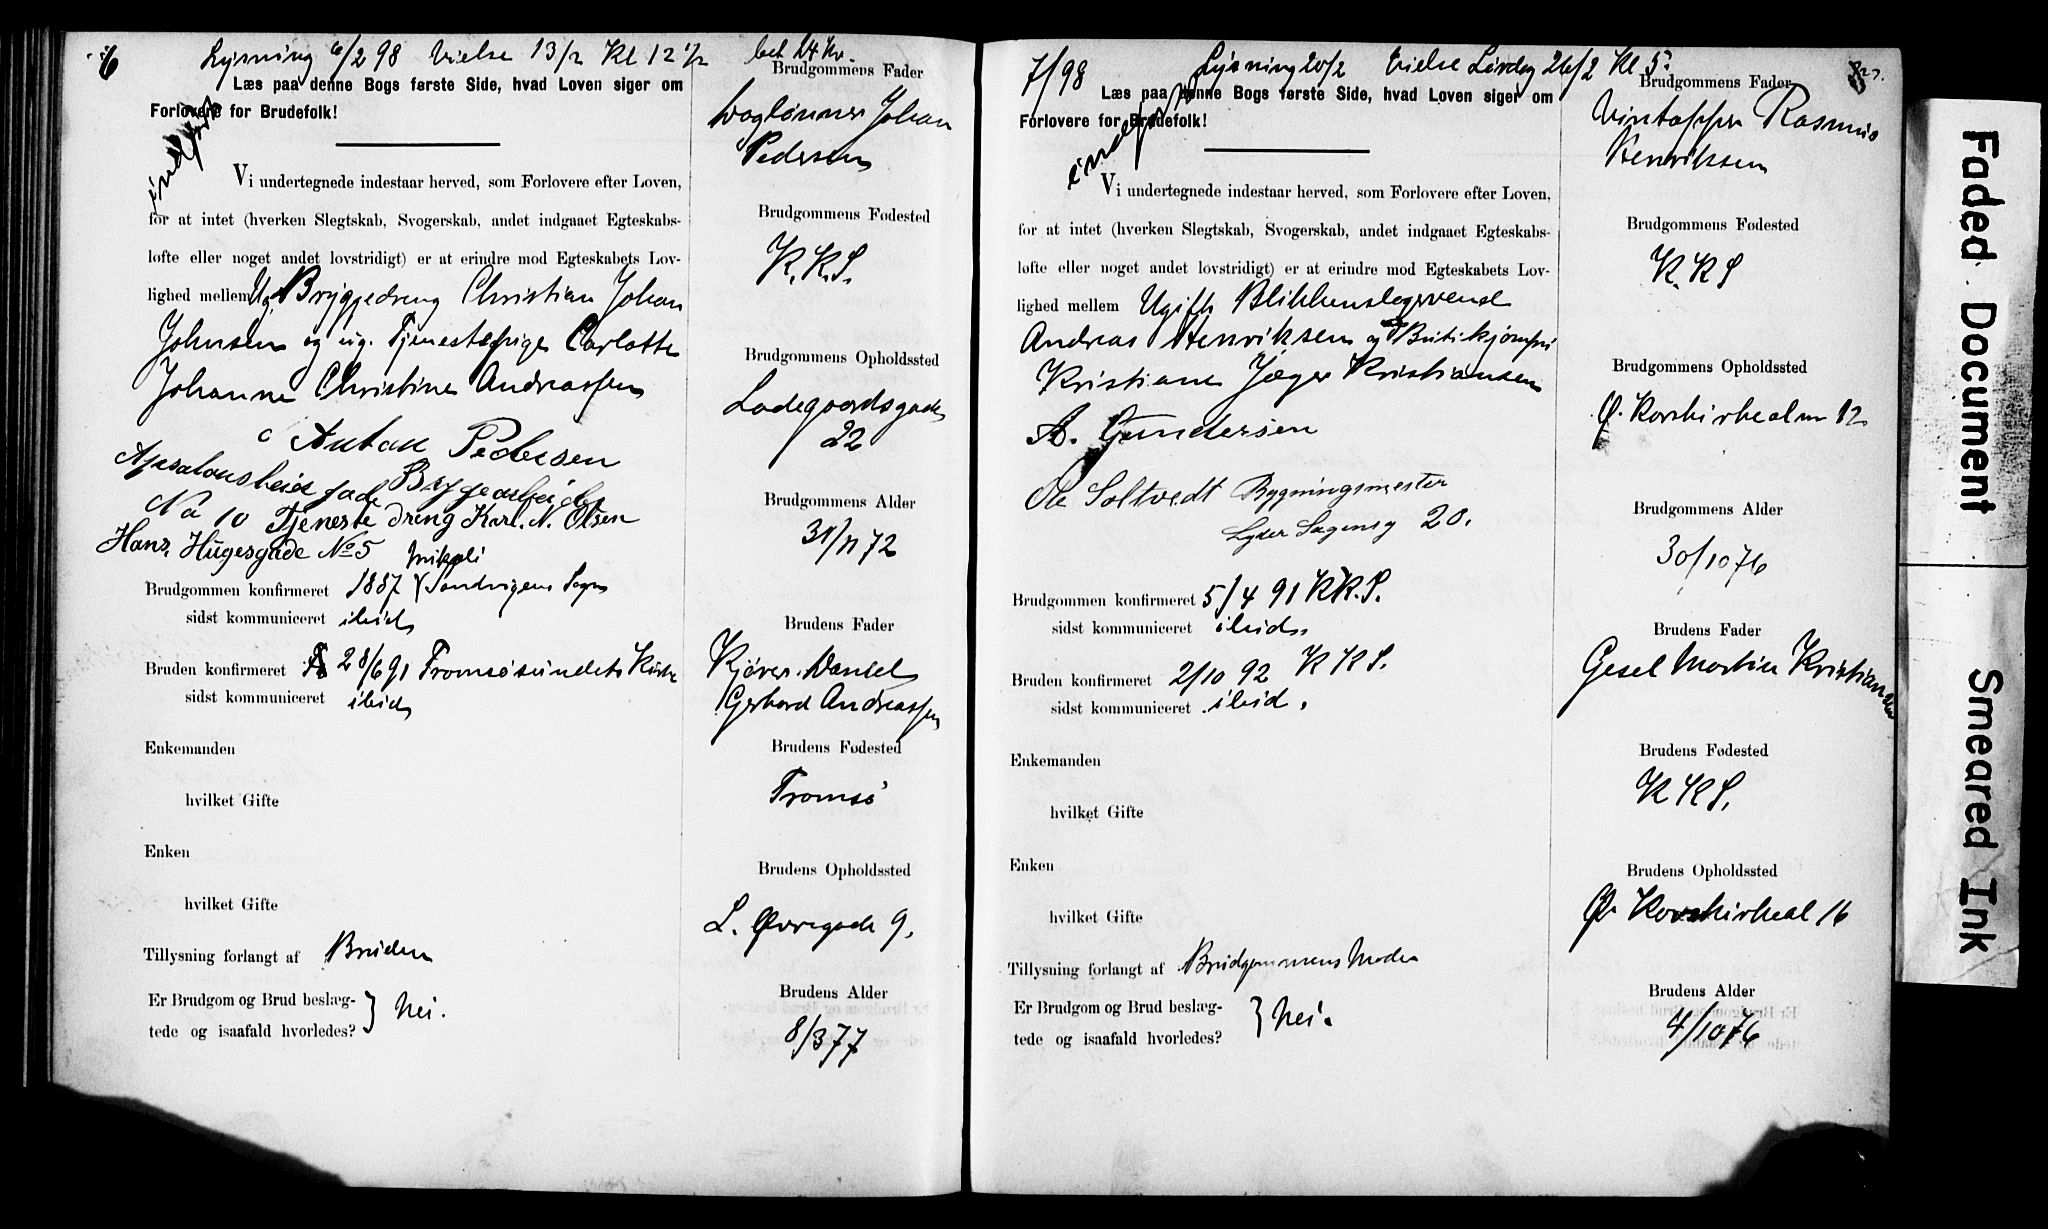 6
Lysning 6/2 98 Vielse 13/2 Kl 12 1/2
bet 14 Kr.
Læs paa denne Bogs første Side, hvad Loven siger om
Forlovere for Brudefolk!
indført
Vi undertegnede indestaar herved, som Forlovere efter Loven,
for at intet (hverken Slegtskab, Svogerskab, andet indgaaet Egteskabs-
løfte eller noget andet lovstridigt) er at erindre mod Egteskabets Lov-
lighed mellem Ug. Bryggedreng Christian Johan
Johnsen og ug. Tjenestepige Carlotte
Johanne Christine Andreassen
Anton Pedersen
Absalonsbeiergade Bryggearbeider
No 10 Tjenestedreng Karl. N. Olsen
Hans, Hugesgade No 5
Brudgommen konfirmeret 1887 Sandvigens Sogn
sidst kommuniceret ibid
Bruden konfirmeret 28/6 91 Tromsøsundets Kirke
sidst kommuniceret ibid
Enkemanden
hvilket Gifte
Enken
hvilket Gifte
Tillysning forlangt af Bruden
Er Brudgom og Brud beslæg-
tede og isaafald hvorledes? } Nei.
Brudgommens Fader
Daglønner Johan
Pedersen
Brudgommens Fødested
K.K.S.
Brudgommens Opholdssted
Ladegaardsgade
22
Brudgommens Alder
31/11 72
Brudens Fader
Kjører. Daniel
Gerhard Andreassen
Brudens Fødested
Tromsø
Brudens Opholdssted
L. Øvregade 9.
Brudens Alder
8/3 77
7/98
Lysning 20/2 Vielse Lørdag 26/2 Kl 5.
Læs paa denne Bogs første Side, hvad Loven siger om
Forlovere for Brudefolk!
indført
Vi undertegnede indestaar herved, som Forlovere efter Loven,
for at intet (hverken Slegtskab, Svogerskab, andet indgaaet Egteskabs-
løfte eller noget andet lovstridigt) er at erindre mod Egteskabets Lov-
lighed mellem Ugift Blikkenslagersvend
Andreas Henriksen og Butikjomfru
Kristiane Jæger Kristiansen
A. Gundersen
Ole Soltvedt Bygningsmester
Lyder Sagensg 20.
Brudgommen konfirmeret 5/4 91 KK.S.
sidst kommuniceret ibid
Bruden konfirmeret 2/10 92 KKS.
sidst kommuniceret ibid.
Enkemanden
hvilket Gifte
Enken
hvilket Gifte
Tillysning forlangt af Brudgommens Moder
Er Brudgom og Brud beslæg-
tede og isaafald hvorledes? } Nei.
Brudgommens Fader
Vintapper Rasmus
Henriksen
Brudgommens Fødested
K.KS
Brudgommens Opholdssted
Ø. Korskirkealm 12
Brudgommens Alder
30/10 76
Brudens Fader
Gesel Martin Kristiansen
Brudens Fødested
KKS.
Brudens Opholdssted
Ø. Korskirkeal 16
Brudens Alder
4/10 76
Faded Document
Smeared Ink